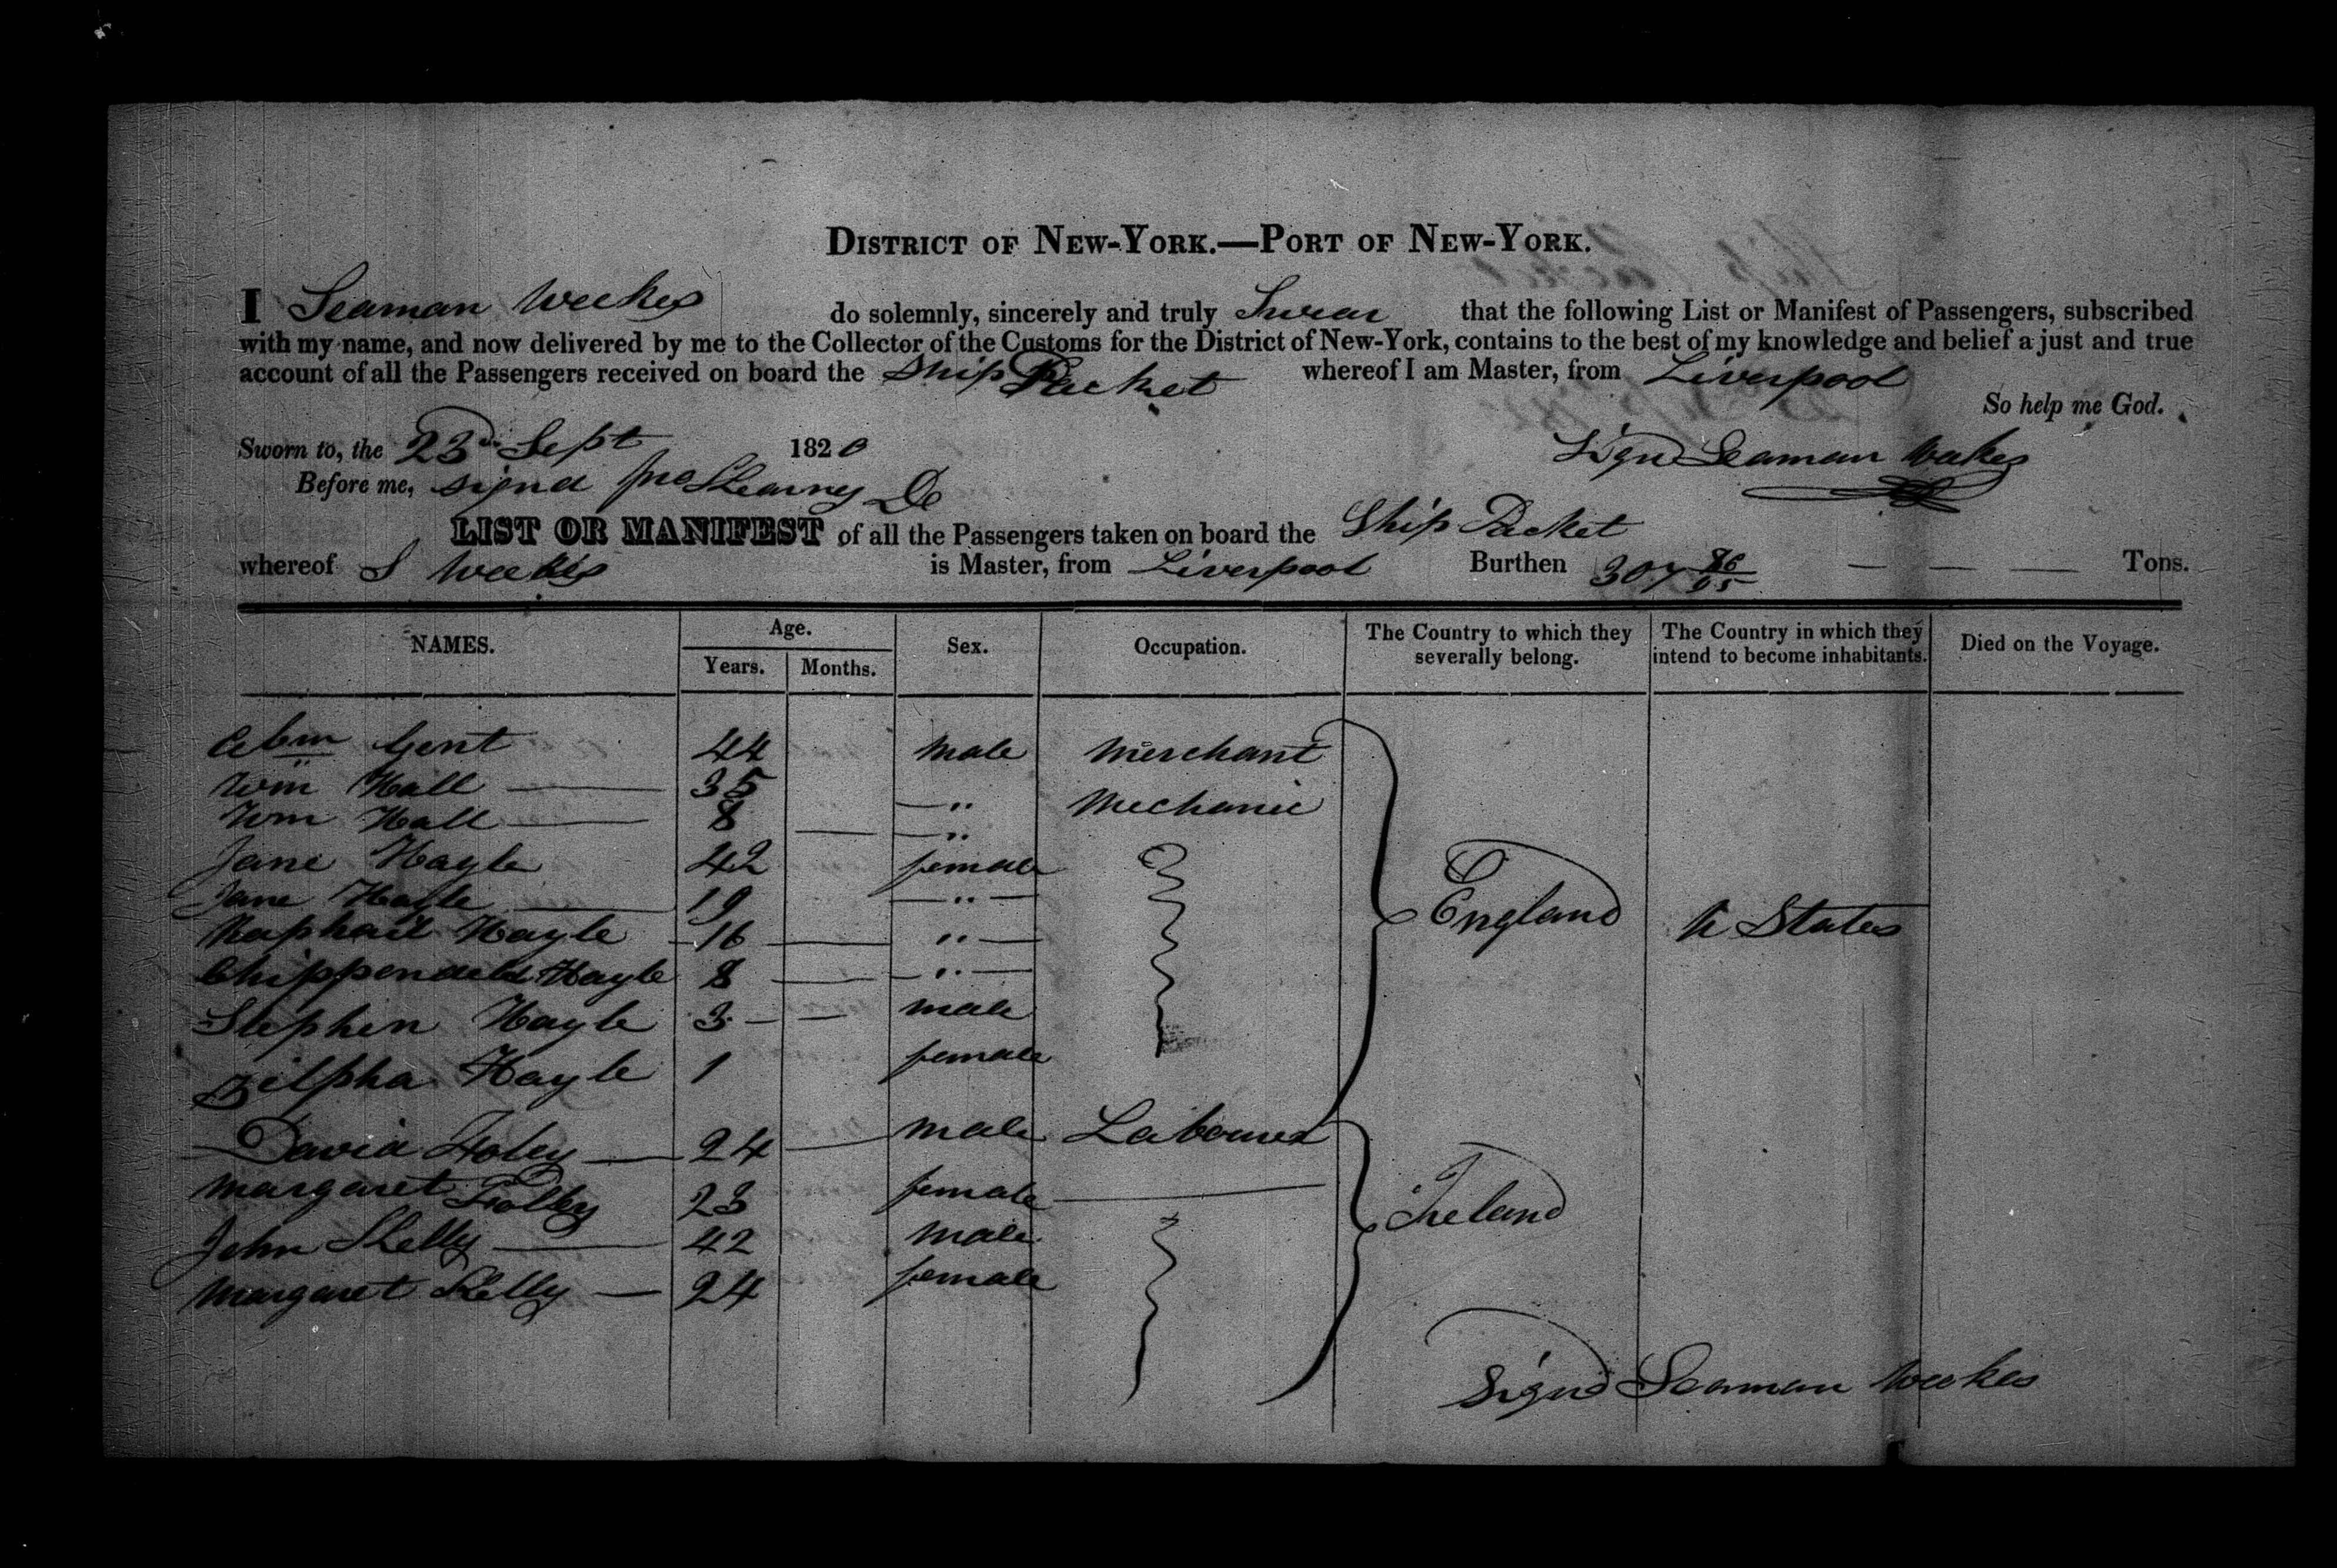 DISTRICT OF NEW-YORK.—PORT OF NEW-YORK.
I Seaman Weekes do solemnly, sincerely and truly Swear that the following List or Manifest of Passengers, subscribed
with my name, and now delivered by me to the Collector of the Customs for the District of New-York, contains to the best of my knowledge and belief a just and true
account of all the Passengers received on board the Ship Packet whereof I am Master, from Liverpool
So help me God.
Sworn to, the 23d Sept 1820 Sign Seaman Weekes
Before me, signd
LIST OR MANIFEST of all the Passengers taken on board the Ship Packet
whereof S Weekes is Master, from Liverpool Burthen 307 86/95 — — — Tons.
NAMES. Age. Sex. Occupation. The Country to which they severally belong. The Country in which they intend to become inhabitants. Died on the Voyage.
Years. Months.
Abm Gent 44 male Merchant
Wm Hall — 35 — " Mechanic
Wm Hall — 8 — — "
Jane Hayle 42 female
Jane Hayle — 19 — " —
Raphail Hayle — 16 — " — England U States
Chippendale Hayle 8 — — " —
Stephen Hayle 3 — — male
Zilpha Hayle 1 female
David Foley — 24 — male Labourer
Margaret Folley 23 female — Ireland
John Skelly — 42 male
Margaret Skelly — 24 female
Signd Seaman Weekes